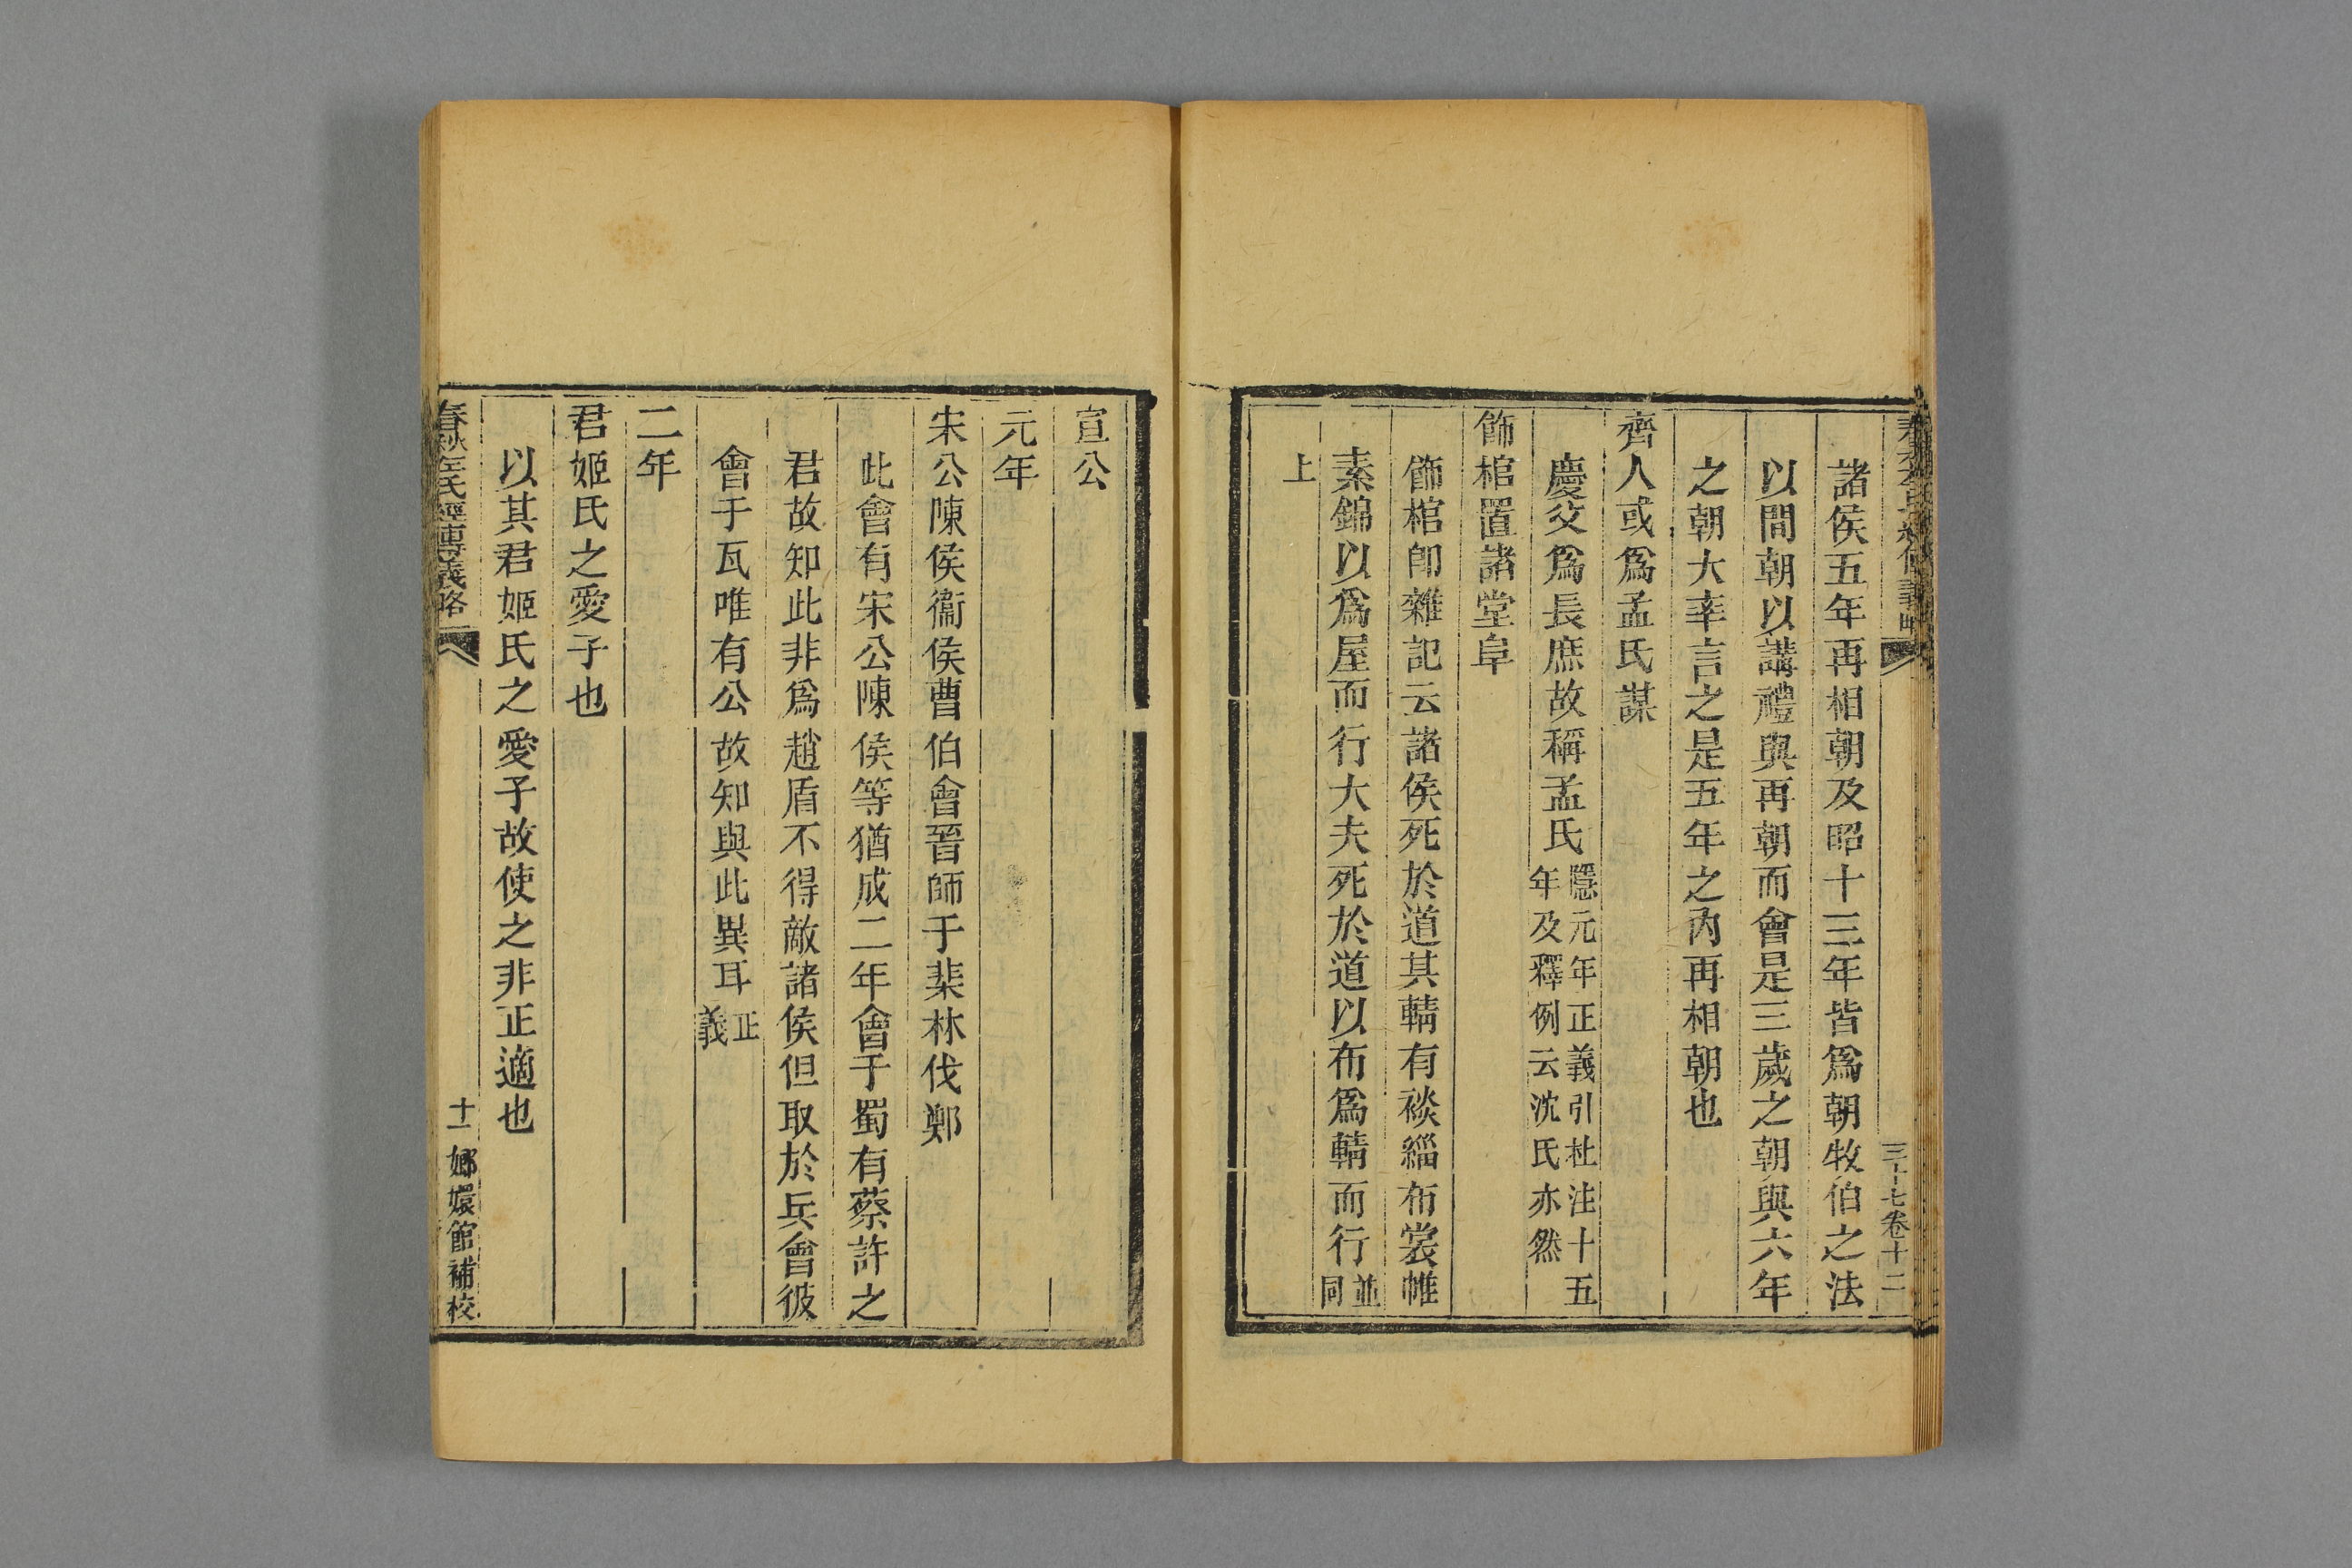 諸侯五年再相朝及昭十三年皆爲朝牧伯之法
以間朝以講禮與再朝而會是三歲之朝與六年
之朝大率言之是五年之內再相朝也
齊人或爲孟氏謀
慶父爲長庶故稱孟氏隱元年正義引杜注十五年及釋例云沈氏亦然
飾棺置諸堂阜
飾棺卽雜記云諸侯死於道其輤有裧緇布裳帷
素錦以爲屋而行大夫死於道以布爲輤而行並同
上
三十七卷十二
宣公
元年
宋公陳侯衞侯曹伯會晉師于棐林伐鄭
此會有宋公陳侯等猶成二年會于蜀有蔡許之
君故知此非爲趙盾不得敵諸侯但取於兵會彼
會于瓦唯有公故知與此異耳正義
二年
君姬氏之愛子也
以其君姬氏之愛子故使之非正適也
春秋左氏經傳義略
十一
嫏嬛館補校